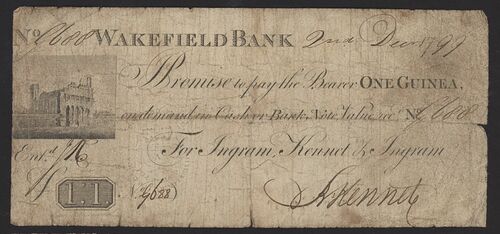 No. 2688 WAKEFIELD BANK 2nd Decr. 1799
Promise to pay the Bearer ONE GUINEA,
on demand in Cash or Bank Note, Value rec'd No. 2688
Ent.d
For Ingram, Kennet & Ingram
£1.1. No. 2688
Kennet